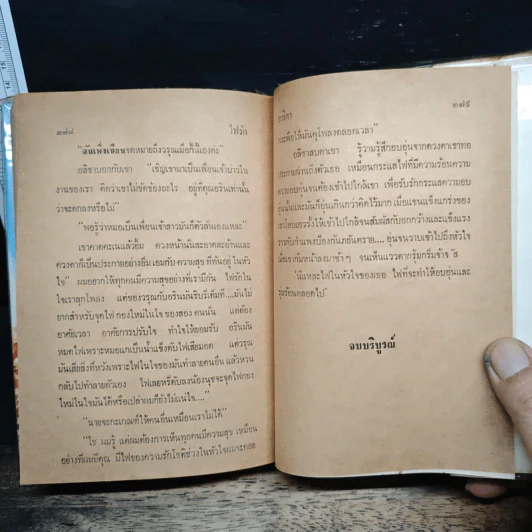 ๓๗๘ ไฟรัก
"ฉันเพิ่งเขียนจดหมายถึงวรุณเมื่อกี้นี้เองค่ะ"
อลิชาบอกกับเขา "เชิญเขามาเป็นเพื่อนเจ้าบ่าวใน
งานของเรา คิดว่าเขาไม่ขัดข้องอะไร อยู่ที่คุณอรินเท่านั้น
ว่าจะตกลงหรือไม่"
"พอรู้ว่าหมอเป็นเพื่อนเจ้าสาวมันก็ตัวสั่นเองแหละ"
เขาคาดคะเนแล้วยิ้ม ดวงหน้านั้นสะอาดสะอ้านและ
ดวงตาก็เป็นประกายอย่างยิ้ม เอมกับ ความสุข ที่ทันอยู่ ในหัว
ใจ" ผมอยากให้ทุกคนมีความสุขอย่างที่เรามีกัน ไฟรักใน
ใจเราลุกโพลง แต่ของวรุณกับอรินมันริบรี่เต็มที....มันไม่
ยากสำหรับจุดไฟ กองใหม่ในใจ ของสอง คนนั้น แต่ต้อง
อาศัยเวลา อาศัยการปรับใจ ทำใจให้ยอมรับ อรินมัน
หมดไฟเพราะหมอแกเป็นน้ำแข็งดับไฟเสียมอด แต่วรุณ
มันเสียสิ่งที่หวังเพราะไฟในใจของมันทำลายคนอื่น แล้วหวน
กลับไปทำลายตัวเอง ไฟเลยหรี่ดับลงน้องนุชจะจุดไฟกอง
ใหม่ในใจมันได้หรือเปล่าผมก็ยังไม่แน่ใจ...."
"นายจะกะเกณฑ์ให้คนอื่นเหมือนเราไม่ได้"
"ใช่ ผมรู้ แต่ผมต้องการเห็นทุกคนมีความสุข เหมือน
อย่างที่ผมมีคุณ มีไฟของความรักโชติช่วงในหัวใจเผาะคอย
๓๗๙
กระพือให้มันคุโพลงตลอดเวลา"
อลิชาสบตาเขา รู้ความรู้สึกอบอุ่นจากดวงตาเขาทอ
ประกายผ่านถึงตัวเธอ เหมือนกระแสไฟที่มีความร้อนความ
อบอุ่นจนต้องเข้าไปใกล้เขา เพื่อรับรักกระแสความอบ
อุ่นนั้นและมันก็อุ่นเกินกว่าคิดไว้มาก เมื่อแขนแข็งแกร่งของ
เข้าไปใกล้จนสัมผัสกับอกกว้างและแข็งแรง
ราวกับกำแพงป้องกันภยันตราย.... อุ่นจนวาบเข้าไปถึงหัวใจ
เมื่อเขาก้มหน้าลงมาช้าๆ จนเห็นแววตากรุ้มกริ่ม
นี่แหละไฟในหัวใจของเธอ ไฟที่จะทำให้อบอุ่นและ
รุ่มร้อนตลอดไป
จบบริบูรณ์